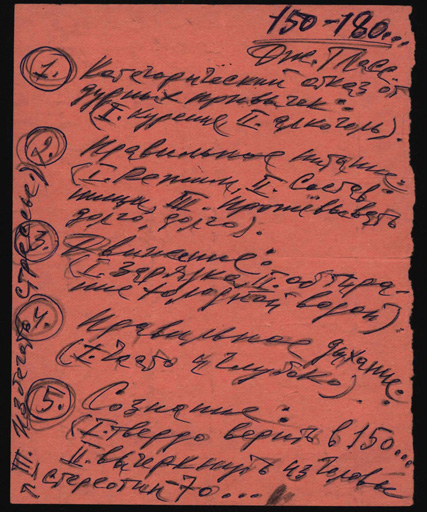 150-180...
Дж. Гласс.
1. Категорический отказ от
дурных привычек:
(I. курение II. алкоголь).
2. Правильное питание:
(I. Режим, II. Состав
пищи, III. Прожёвывать
долго, долго).
3. Движение:
(I. Зарядка, II. обтира-
ние холодной водой)
4. Правильное дыхание:
(I. Часто и глубоко).
5. Сознание:
(I. Твердо верить в 150...
II. вычеркнуть из головы
стереотип 70...
↑ III. Избегать стрессы)